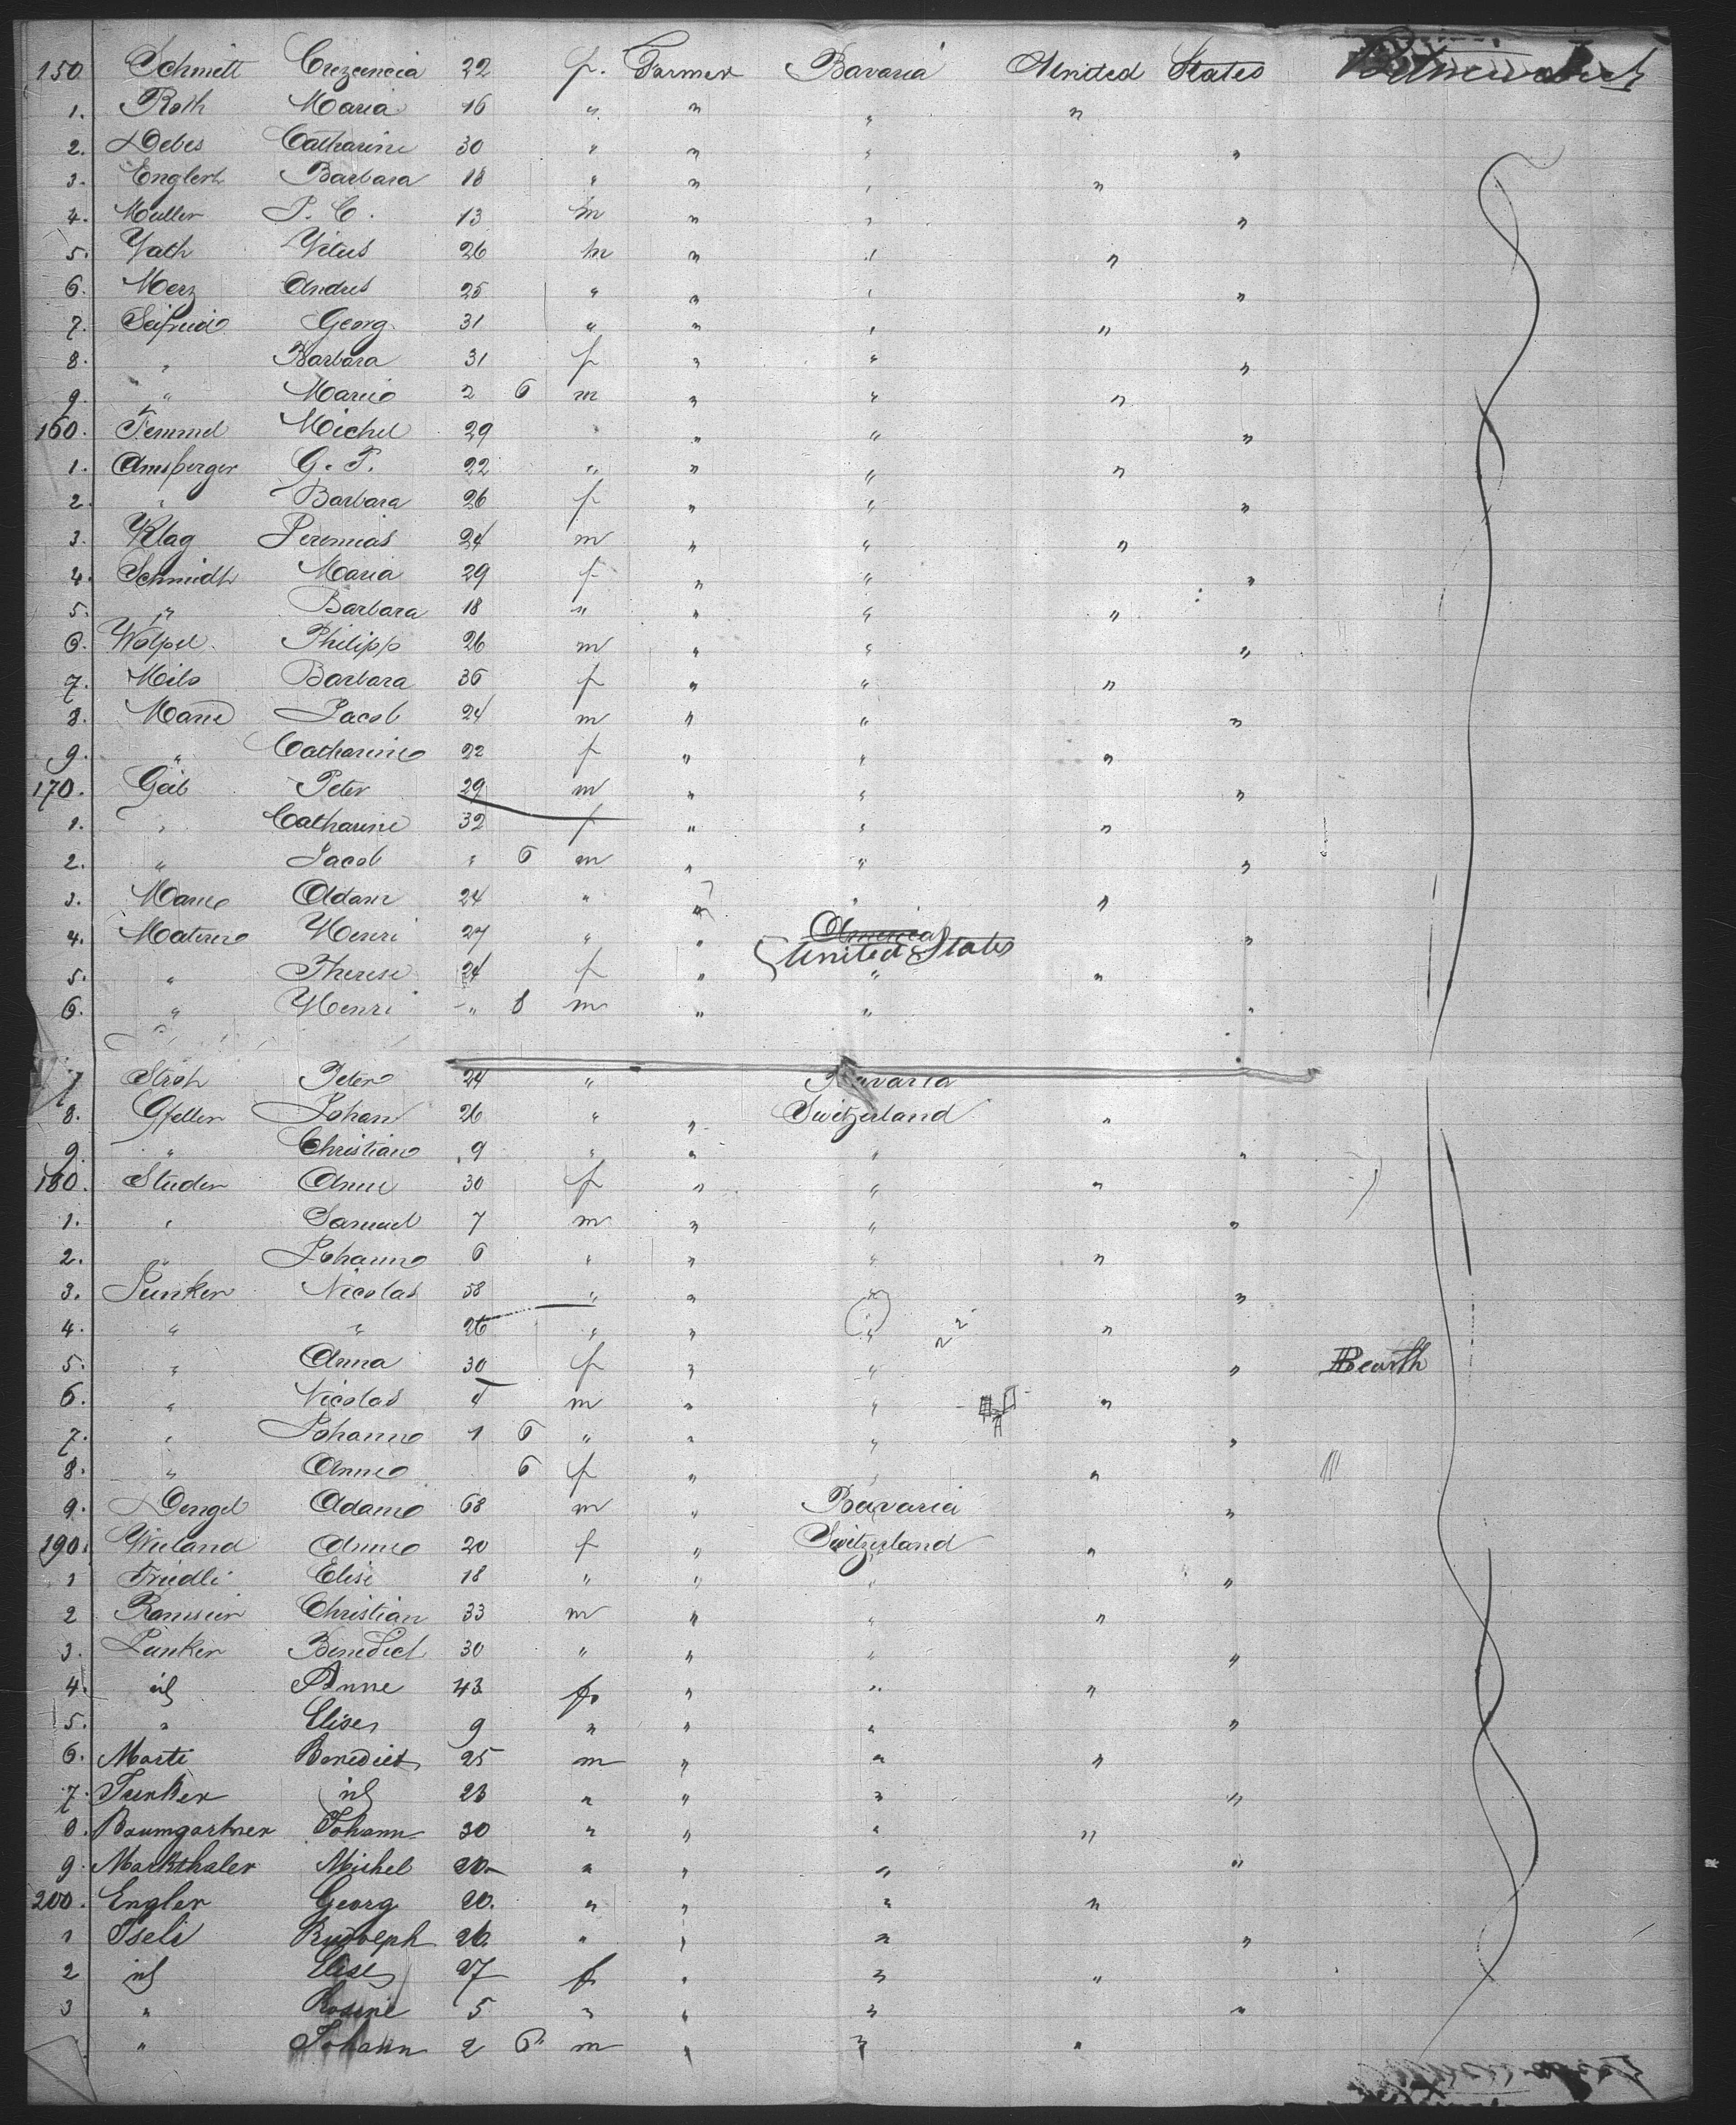 150 Schmitt Crezencia 22 f. Farmer Bavaria United States
1. Roth Maria 16 " " " "
2. Debes Catharine 30 " " " "
3. Englert Barbara 18 " " " "
4. Muller P. C. 13 m " " "
5. Vath Vitus 26 m " " "
6. Merz Andres 25 " " " "
7. Seifried Georg 31 " " " "
8. " Barbara 31 f " " "
9. " Marie 2 6 m " " "
160. Michel 29 " " "
1. Amsberger G. P. 22 " " " "
2. " Barbara 26 f " " "
3. Klag Jeremias 24 m " " "
4. Schmidt Maria 29 f " " "
5. " Barbara 18 " " " "
6. Wolpel Philipp 26 m " " "
7. Milo Barbara 36 f " " "
8. Marie Jacob 24 m " " "
9. " Catharine 22 f " " "
170. Geib Peter 29 m " " "
1. " Catharine 32 f " " "
2. " Jacob " 6 m " " "
3. Adam 24 " " " "
4. Henri 27 " " America "
United States
5. " Therese 24 f " " "
6. " Henri " 8 m " " "
7 Stroh Peter 24 " Bavaria
8. Gfeller Johan 26 " " Switzerland "
9. " Christian 9 " " " "
180. Studer Anne 30 f " " "
1. " Samuel 7 m " " "
2. " Johann 6 " " " "
3. Junker Nicolas 58 " " " "
4. " " 26 " " " "
5. " Anna 30 f " " "
6. " Nicolas m " " "
7. " Johann 1 6 " " " "
8. " Anne 6 f " " "
9. Dengel Adam 68 m " Bavaria "
190. Wieland Anne 20 f " Switzerland "
1 Friedli Elise 18 " " " "
2 Ramseier Christian 33 m " " "
3. Junker Benedict 30 " " " "
4. id Anne 43 f " " "
5. " Elise 9 " " " "
6. Marti Benedict 25 m " " "
7. Junker id 23 " " " "
8. Baumgartner Johann 30 " " " "
9. Markthaler Michel 20 " " " "
200. Engler Georg 20. " " " "
1 Iseli Rudolph 26 " " " "
2 id Elise 27 f " " "
3 " Rosine 5 " " " "
" Johann 2 6 m " " "